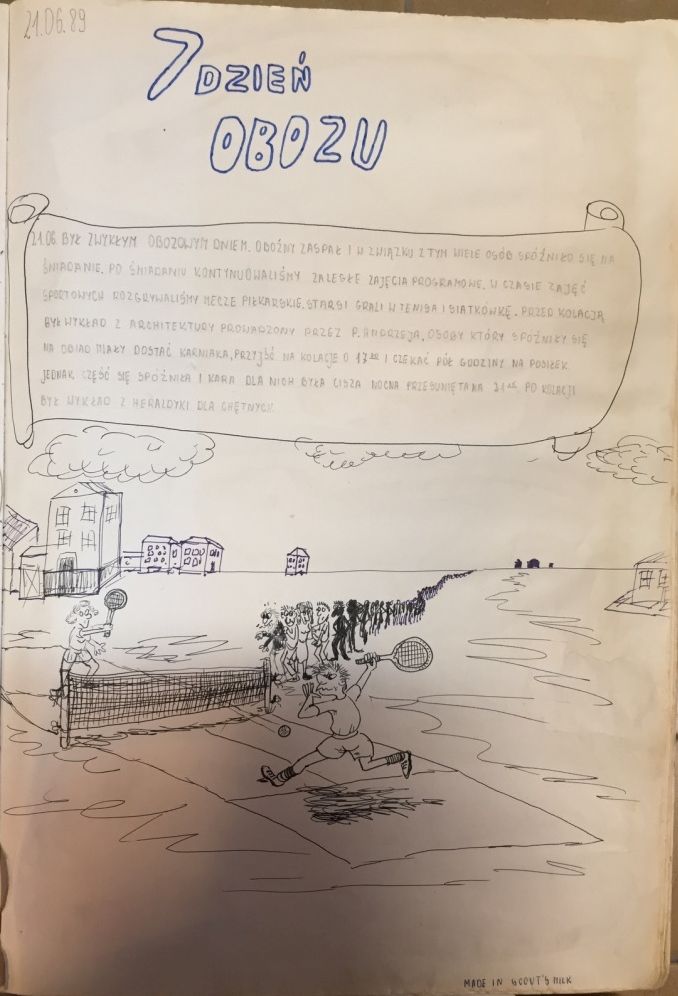 21.06.89
7 DZIEŃ
OBOZU
21.06. BYŁ ZWYKŁYM OBOZOWYM DNIEM. OBOŹNY ZASPAŁ I W ZWIĄZKU Z TYM WIELE OSÓB SPÓŹNIŁO SIĘ NA
ŚNIADANIE. PO ŚNIADANIU KONTYNUOWALIŚMY ZALEGŁE ZAJĘCIA PROGRAMOWE. W CZASIE ZAJĘĆ
SPORTOWYCH ROZGRYWALIŚMY MECZE PIŁKARSKIE. STARSI GRALI W TENISA I SIATKÓWKĘ. PRZED KOLACJĄ
BYŁ WYKŁAD Z ARCHITEKTURY PROWADZONY PRZEZ P. ANDRZEJA. OSOBY KTÓRY SPÓŹNIŁY SIĘ
NA OBIAD MIAŁY DOSTAĆ KARNIAKA, PRZYJŚĆ NA KOLACJE O I CZEKAĆ PÓŁ GODZINY NA POSIŁEK.
JEDNAK CZĘŚĆ SIĘ SPÓŹNIŁA I KARA DLA NICH BYŁA CISZA NOCNA PRZESUNIĘTA NA PO KOLACJI
BYŁ WYKŁAD Z HERALDYKI DLA CHĘTNYCH.
MADE IN SCOUT'S MILK